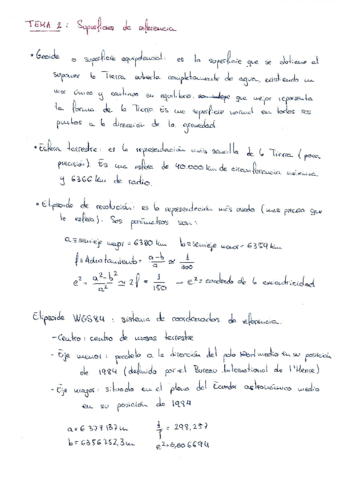 TEMA 2: Superficies de referencia
• Geoide o superficie equipotencial: es la superficie que se obtiene al
suponer la Tierra cubierta completamente de agua, existiendo un
mar único y continuo en equilibrio. que mejor representa
la forma de la Tierra. Es una superficie normal en todos sus
puntos a la dirección de la gravedad
• Esfera terrestre: es la representación más sencilla de la Tierra (poca
precisión). Es una esfera de 40.000 km de circunferencia máxima
y 6366 km de radio.
• Elipsoide de revolución: es la representación más usada (más precisa que
la esfera). Sus parámetros son:
a = semieje mayor = 6380 km b = semieje menor = 6354 km
f = Achatamiento = a-b / a ≃ 1 / 300
e² = a²-b² / a² ≃ 2f = 1 / 150 → e² = cuadrado de la excentricidad
Elipsoide WGS84: sistema de coordenadas de referencia.
- Centro: centro de masas terrestre
- Eje menor: paralelo a la dirección del polo Norte medio en su posición
de 1984 (definido por el Bureau International de l'Heure)
- Eje mayor: situado en el plano del Ecuador astronómico medio
en su posición de 1984
a = 6 378 137 m 1 / f = 298,257
b = 6356752,3 m e² = 0,006694